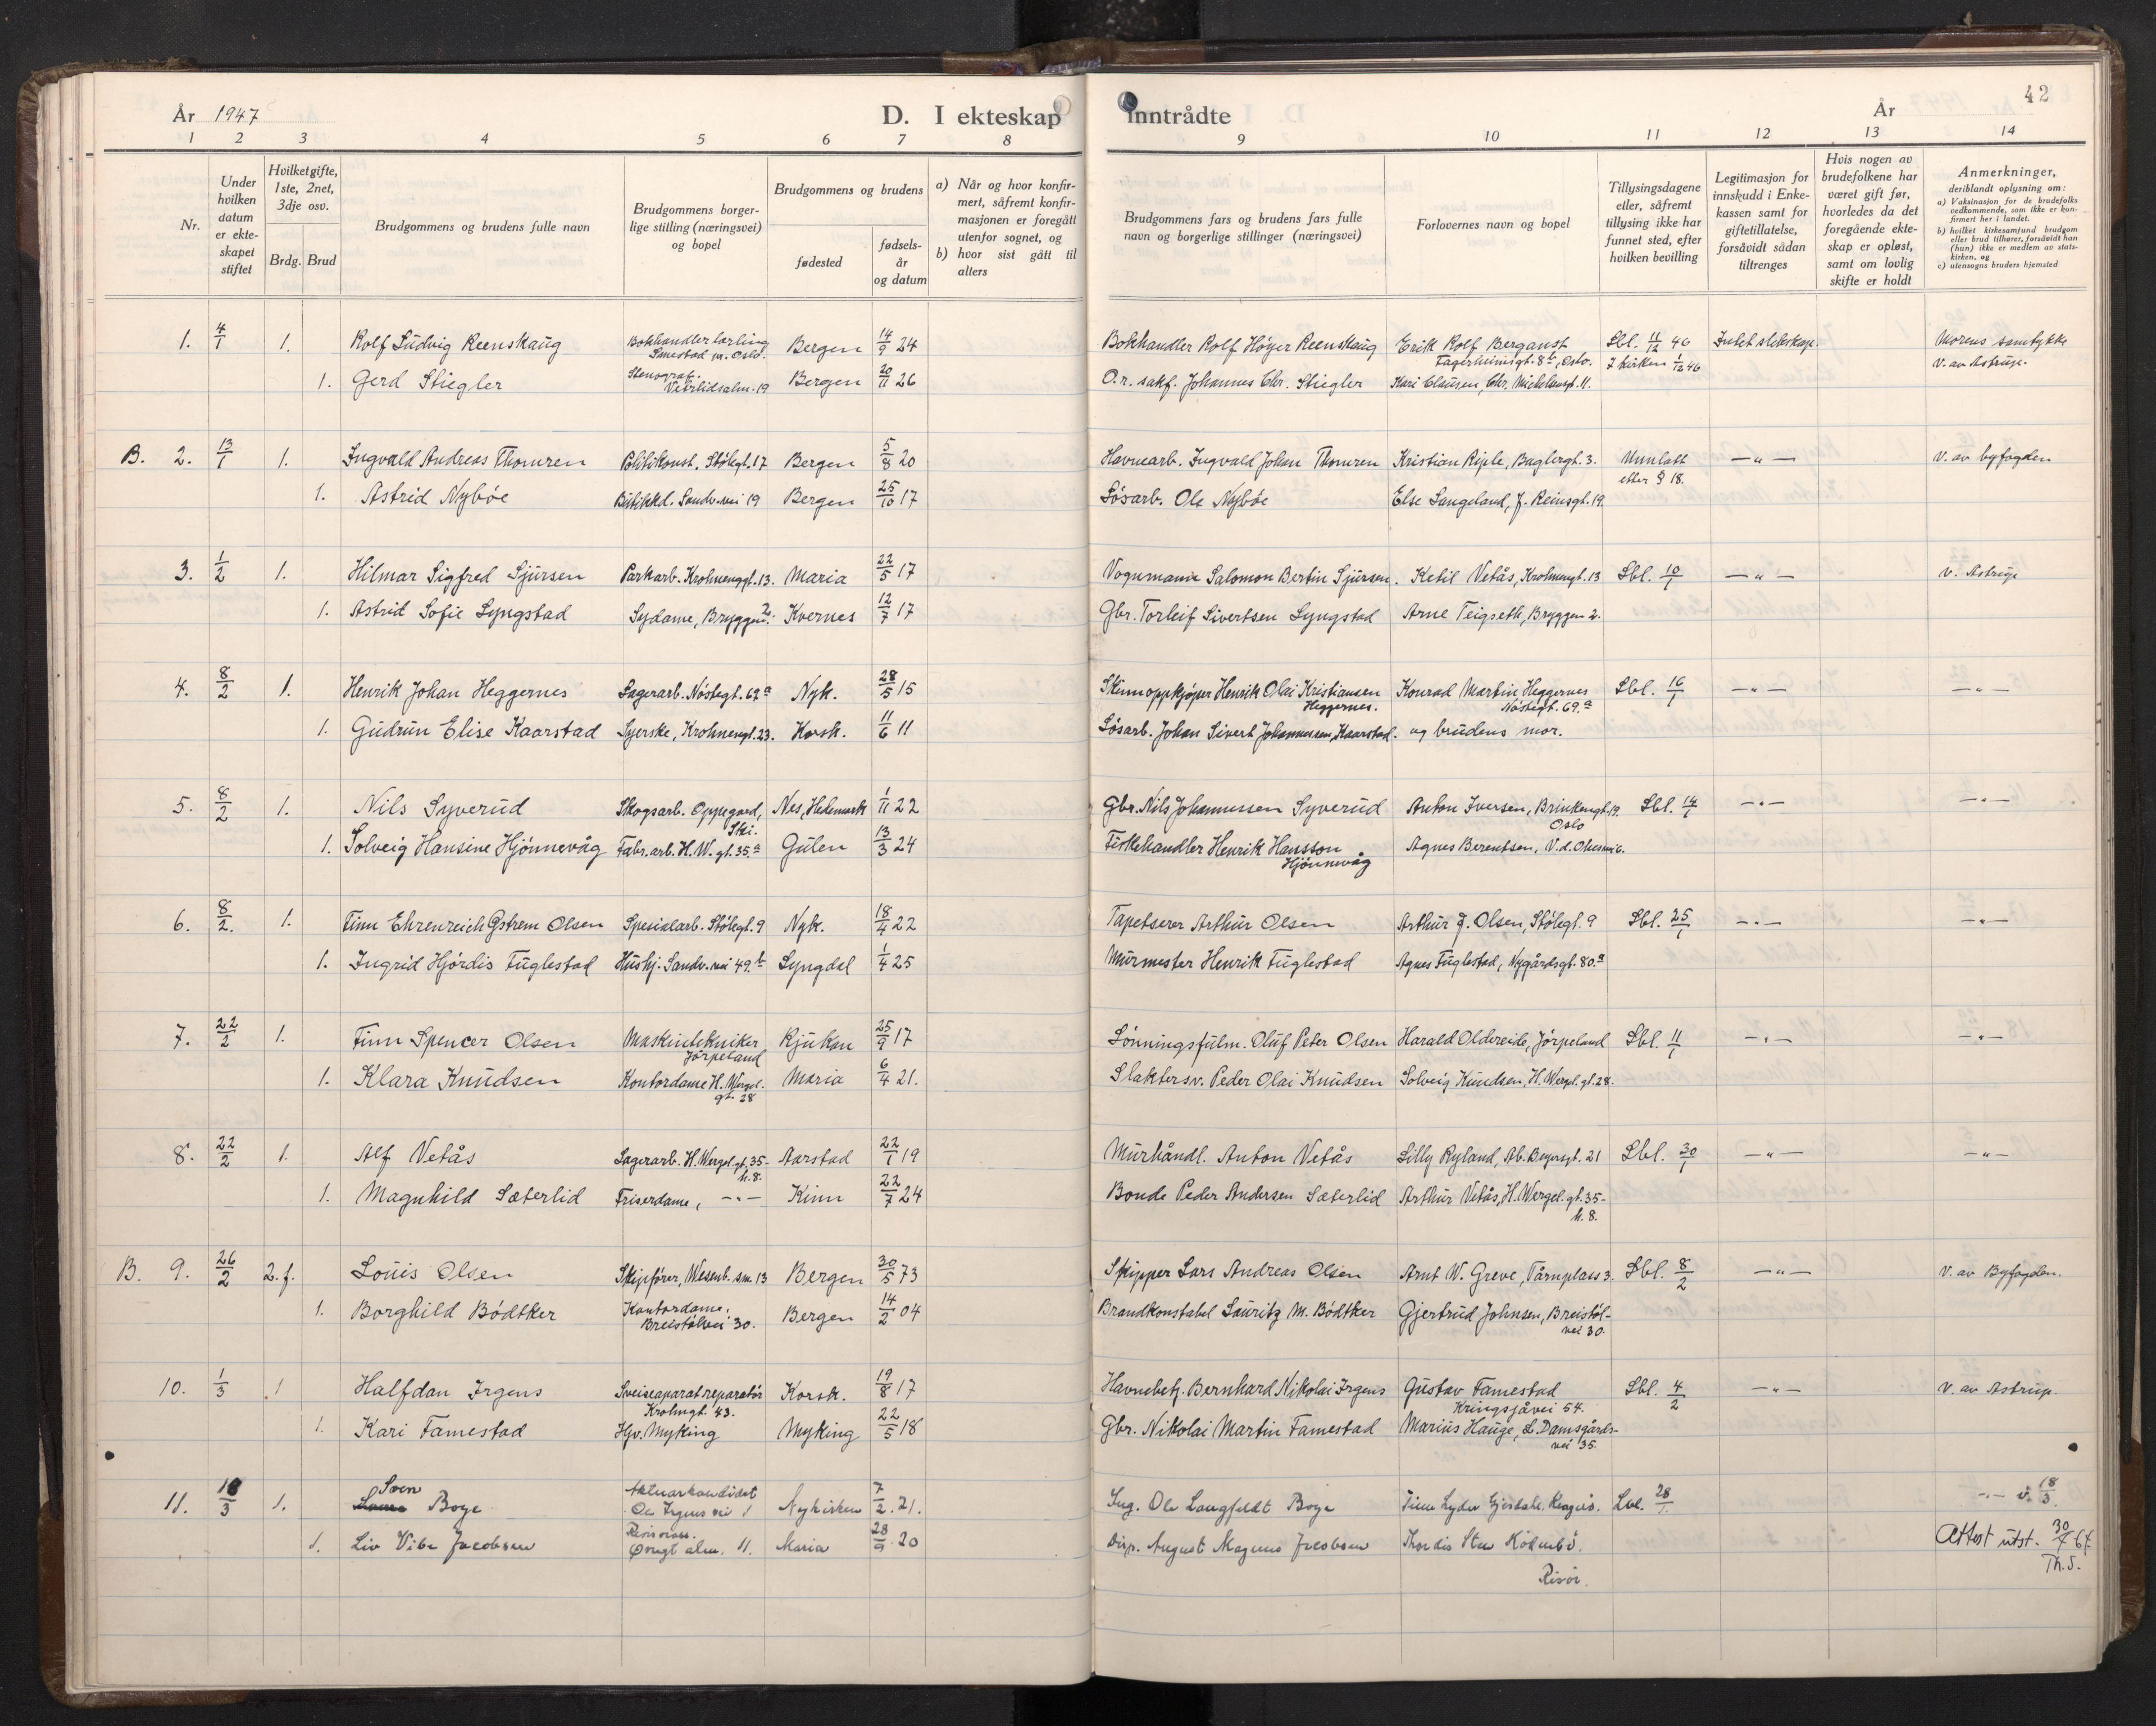 År 1947
D. I ekteskap inntrådte
År
42
1 2 3 4 5 6 7 8 9 10 11 12 13 14
Nr.
Under hvilken datum er ekteskapet stiftet
Hvilket gifte, 1ste, 2net, 3dje osv.
Brdg. Brud
Brudgommens og brudens fulle navn
Brudgommens borgerlige stilling (næringsvei) og bopel
Brudgommens og brudens
fødested
fødselsår og datum
a) Når og hvor konfirmert, såfremt konfirmasjonen er foregått utenfor sognet, og
b) hvor sist gått til alters
Brudgommens fars og brudens fars fulle navn og borgerlige stillinger (næringsvei)
Forlovernes navn og bopel
Tillysingsdagene eller, såfremt tillysing ikke har funnet sted, efter hvilken bevilling
Legitimasjon for innskudd i Enkekassen samt for giftetillatelse, forsåvidt sådan tiltrenges
Hvis nogen av brudefolkene har været gift før, hvorledes da det foregående ekteskap er opløst, samt om lovlig skifte er holdt
Anmerkninger, deriblandt oplysning om:
a) Vaksinasjon for de brudefolks vedkommende, som ikke er konfirmert her i landet.
b) hvilket kirkesamfund brudgom eller brud tilhører, forsåvidt han (hun) ikke er medlem av statskirken, og
c) utensogns bruders hjemsted
1. 4/1 1. Rolf Ludvig Reenskaug Bokhandlerlærling Smestad v. Oslo. Bergen 14/9 24 Bokhandler Rolf Höyer Reenskaug Erik Rolf Berganst Fagerheimsgt. 8, Oslo. Lbl. 11/12 46 I kirken 1/12 46 Intet slekskap. Morens samtykke V. av Astrup.
1. Gerd Stiegler Stenograf. Vetrlidsalm. 19 Bergen 20/11 26 O.r. sakf. Johannes Chr. Stiegler Kari Clausen, Chr. Michelsensgt. 11.
B. 2. 13/1 1. Ingvald Andreas Thomren Politikonst. Stølegt. 17 Bergen 5/8 20 Havnearb. Ingvald Johan Thomren Kristian Riple, Baglergt. 3. Unnlatt etter § 18. —"— V. av byfogden
1. Astrid Nybøe Butikkd. Sandv.vei 19 Bergen 25/10 17 Løsarb. Ole Nybøe Else Langeland, J. Reinsgt. 19.
3. 1/2 1. Hilmar Sigfred Sjursen Parkarb. Krohnenggt. 13. Maria 22/5 17 Vognmann Salomon Bertin Sjursen. Ketil Vetås, Krohnengt. 13 Lbl. 10/1 —"— V. Astrup
1. Astrid Sofie Lyngstad Sydame, Bryggen 2. Kvernes 12/7 17 Gbr. Torleif Sivertsen Lyngstad Arne Teigseth, Bryggen 2.
4. 8/2 1. Henrik Johan Heggernes Lagerarb. Nöstegt. 69 a Nyk. 28/5 15 Skinnoppkjöper Henrik Olai Kristiansen Heggernes. Konrad Martin Heggernes Nöstegt. 69. a Lbl. 16/1 —"— —"—
1. Gudrun Elise Kaarstad Syerske, Krohnengt. 23. Korsk. 11/6 11 Løsarb. Johan Sivert Johannessen Kaarstad. og brudens mor.
5. 8/2 1. Nils Syverud Skogsarb. Oppegard, Ski. Nes, Hedemark 1/11 22 Gbr. Nils Johannessen Syverud Anton Iversen, Brinkengt. 19. Oslo Lbl. 14/1 —"— —"—
1. Solveig Hansine Hjönnevåg Fabr.arb. H.W. gt. 35. a Gulen 13/3 24 Fiskehandler Henrik Hansson Hjönnevåg Agnes Berentsen,
6. 8/2. 1. Finn Ehrenreich Olsen Spesialarb. Stølegt. 9 Nyk. 18/4 22 Tapetserer Arthur Olsen Arthur J. Olsen, Stølegt. 9 Lbl. 25/1 —"— —"—
1. Ingrid Hjördis Fuglestad Hushj. Sandv.vei 49. Lyngdal 1/4 25 Murmester Henrik Fuglestad Agnes Fuglestad, Nygårdsgt. 80. a
7. 22/2 1. Finn Spencer Olsen Maskintekniker Jørpeland Rjukan 25/9 17 Lönningsfulm. Oluf Peter Olsen Harald Oldereide, Jørpeland Lbl. 11/1 —"— —"—
1. Klara Knudsen Kontordame H. Wergel. gt. 28 Maria 6/4 21. Slaktersv. Peder Olai Knudsen Solveig Knudsen, H. Wergl. gt. 28.
8. 22/2 1. Alf Vetås Lagerarb. H. Wergel. gt. 35- h. 8. Aarstad 22/1 19 Murhåndl. Anton Vetås Lilly Ryland, Ab. Beyersgt. 21 Lbl. 30/1 —"— —"—
1. Magnhild Sæterlid Friserdame, —"— Kinn 22/7 24 Bonde Peder Andersen Sæterlid Arthur Vetås, H. Wergel. gt. 35- h. 8.
B. 9. 26/2 2. f. Louis Olsen Skipfører, Wesenb. sm. 13 Bergen 30/5 73 Skipper Lars Andreas Olsen Arnt W. Greve, Tårnplass 3. Lbl. 8/2 —"— V. av Byfogden.
1. Borghild Bödtker Kontordame. Breistölsvei 30. Bergen 14/2 04 Brandkonstabel Lauritz M. Bödtker Gjertrud Johnsen, Breistöl- vei 30.
10. 1/3 1 Halfdan Irgens Sveiseaparatreparatör Krohngt. 43. Korsk. 19/8 17 Havnebetj. Bernhard Nikolai Irgens Gustav Famestad Kringsjåvei 54. Lbl. 4/2 —"— V. av Astrup.
1. Kari Famestad Hjv. Myking Myking 22/5 18 Gbr. Nikolai Martin Famestad Marius Hauge, L. Damsgårds- vei 35.
11. 18/3 1. Sven Boye Aktuarkandidat Ole Irgens vei 1 Nykirken 7/2. 21. Ing. Ole Langfeldt Boye Lbl. 28/1. —"— v. 18/3.
1. Liv Vibe Jacobsen alm. 11. Maria 28/9. 20 Disp. August Magnus Jacobsen Risör. Attest utst. 30/7 64 Th.S.